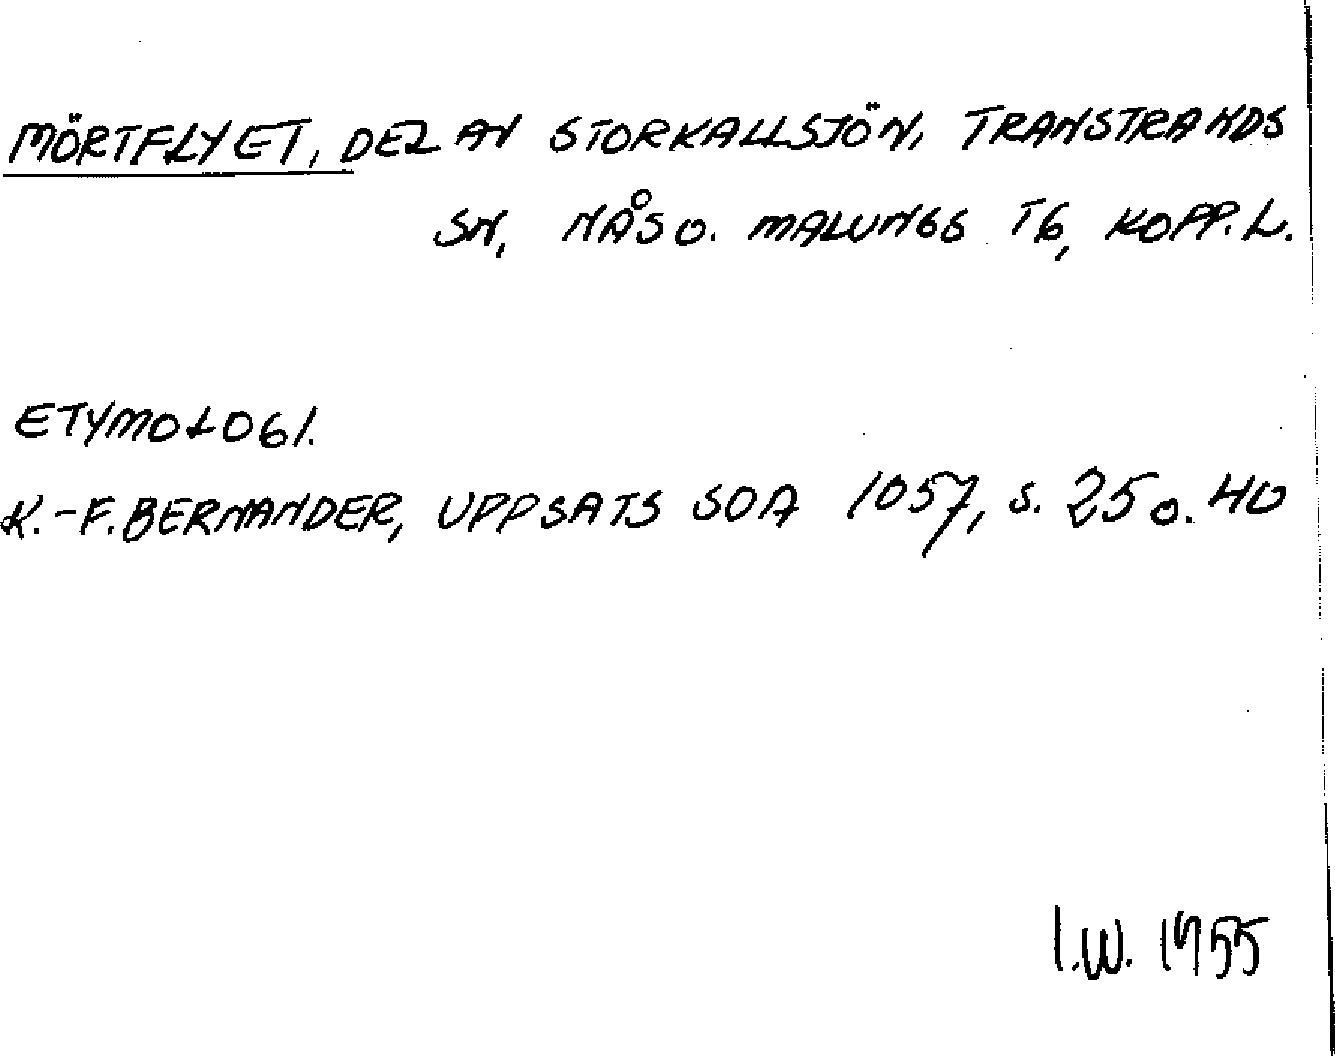 MÖRTFLYET, DEL AV STORKALLSJÖN, TRANSTRANDS
SN, NÅS O. MALUNGS TG, KOPP. L.
ETYMOLOGI.
K.-F. BERNANDER, UPPSATS SOA 1057, S. 25 O. 40
I.W. 1955